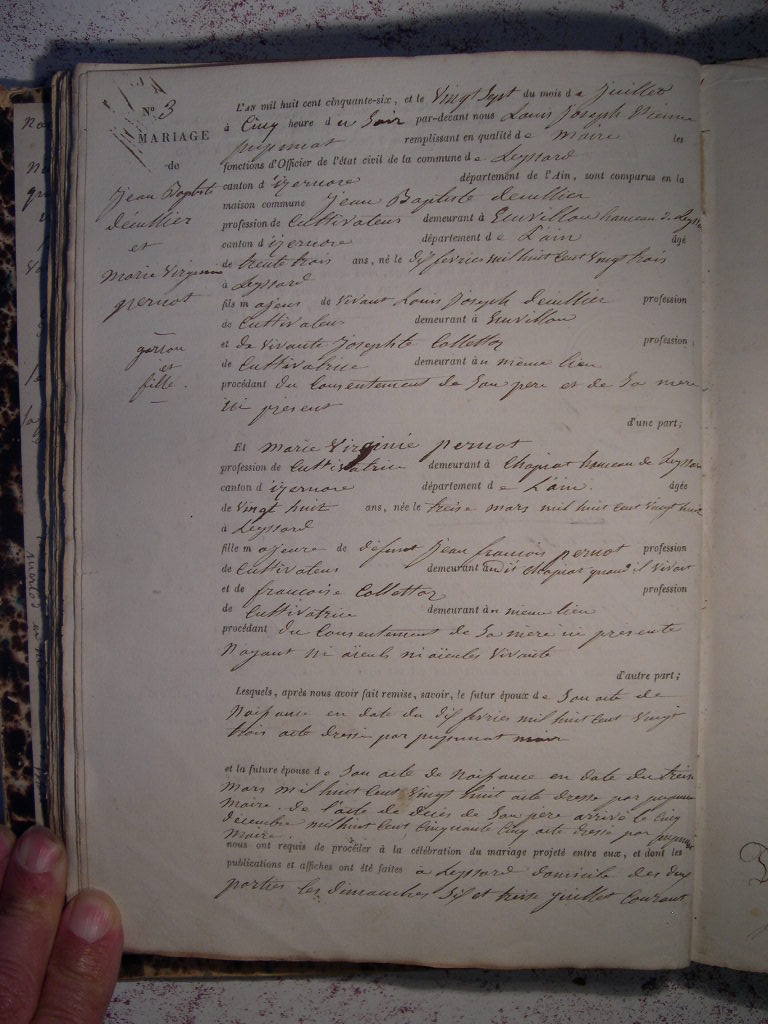 N° 3
MARIAGE
de
jean Baptiste
décullier
et
marie Virginie
pernot
garson
et
fille.
L'AN mil huit cent cinquante-six, et le Vingt Sept du mois de juillet
à Cinq heure du Soir par-devant nous Louis Joseph Etienne
pujunat remplissant en qualité de maire les
fonctions d'Officier de l'état civil de la commune de Leyssard
canton d'izernore département de l'Ain, sont comparus en la
maison commune jean Baptiste decullier
profession de Cultivateur demeurant à Senvillon hameau de Leyssard
canton d'izernore département de L'ain âgé
de trente trois ans, né le dix fevrier mil huit Cent Vingt trois
à Leyssard
fils majeur de vivant Louis joseph decullier profession
de Cultivateur demeurant à Senvillon
et de Vivante josephte Collettaz profession
de Cultivatrice demeurant au même lieu
procédant du Consentement de Son pere et de Sa mere
ici présent
d'une part;
Et marie Virginie pernot
profession de Cultivatrice demeurant à Chapiat hameau de Leyssard
canton d'izernore département de L'ain. âgée
de Vingt huit ans, née le treise mars mil huit Cent Vingt huit
à Leyssard
fille majeure de défunt jean francois pernot profession
de Cultivateur demeurant audit Chapiat quand il vivait
et de francoise Collettaz profession
de Cultivatrice demeurant au même lieu
procédant du Consentement de Sa mère ici présente
N'ayant ni aïeuls ni aïeules Vivante
d'autre part;
Lesquels, après nous avoir fait remise, savoir, le futur époux de Son acte de
Naissance en date du dix fevrier mil huit Cent Vingt
trois acte dressé par pujunat maire
et la future épouse de Son acte de Naissance en date du treise
mars mil huit Cent Vingt huit acte dressé par pujunat
maire. de l'acte de décès de Son père arrivé le Cinq
décembre mil huit Cent Cinquante Cinq acte dressé par pujunat
maire.
nous ont requis de procéder à la célébration du mariage projeté entre eux, et dont les
publications et affiches ont été faites à Leyssard domicile des deux
parties les dimanches Six et treise juillet Courant